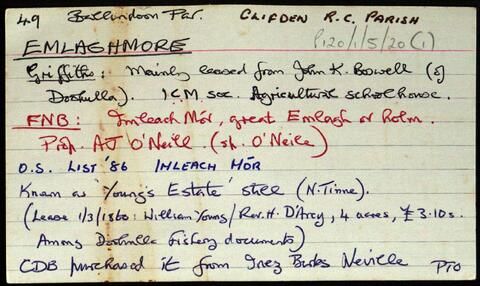 49 Ballindoon Par. CLIFDEN R.C. PARISH
P120/1/5/20 (1)
EMLAGHMORE
Griffiths: Mainly leased from John K. Boswell (of
Doohulla). ICM soc. Agricultural schoolhouse.
FNB: Imleach Mór, great Emlagh or holm.
Prop. AJ O'Neill. (sp. O'Neile)
O.S. LIST '86 IMLEACH MÓR
Known as 'Young's Estate' still (N. Tinne).
(Lease 1/3/1860: William Young/Rev. H. D'Arcy, 4 acres, £3.10s.
Among Doohulla Fishery documents)
CDB purchased it from Inez Burke Neville PTO